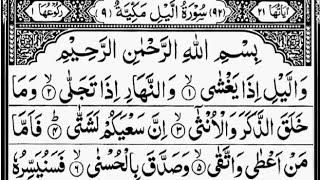 اٰيَاتُهَا ٢١ (٩٢) سُوْرَةُ الَّيْلِ مَكِّيَّةٌ (٩) رُكُوْعُهَا ١
بِسْمِ اللّٰهِ الرَّحْمٰنِ الرَّحِيْمِ
وَالَّيْلِ اِذَا يَغْشٰى ۙ﴿١﴾ وَالنَّهَارِ اِذَا تَجَلّٰى ۙ﴿٢﴾ وَمَا
خَلَقَ الذَّكَرَ وَالْاُنْثٰٓى ۙ﴿٣﴾ اِنَّ سَعْيَكُمْ لَشَتّٰى ؕ﴿٤﴾ فَاَمَّا
مَنْ اَعْطٰى وَاتَّقٰى ۙ﴿٥﴾ وَصَدَّقَ بِالْحُسْنٰى ۙ﴿٦﴾ فَسَنُيَسِّرُهٗ